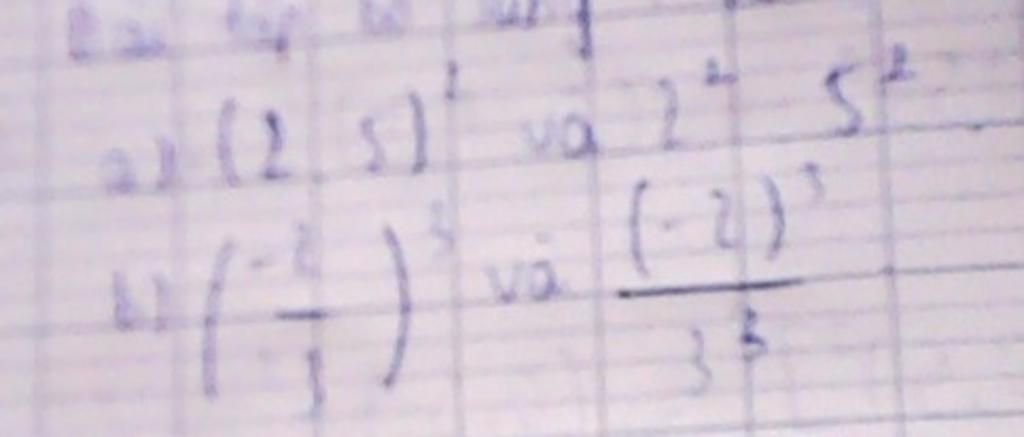 a) (2 5)² và 2² 5²
b) (-2/3)³ và (-2)³/3³